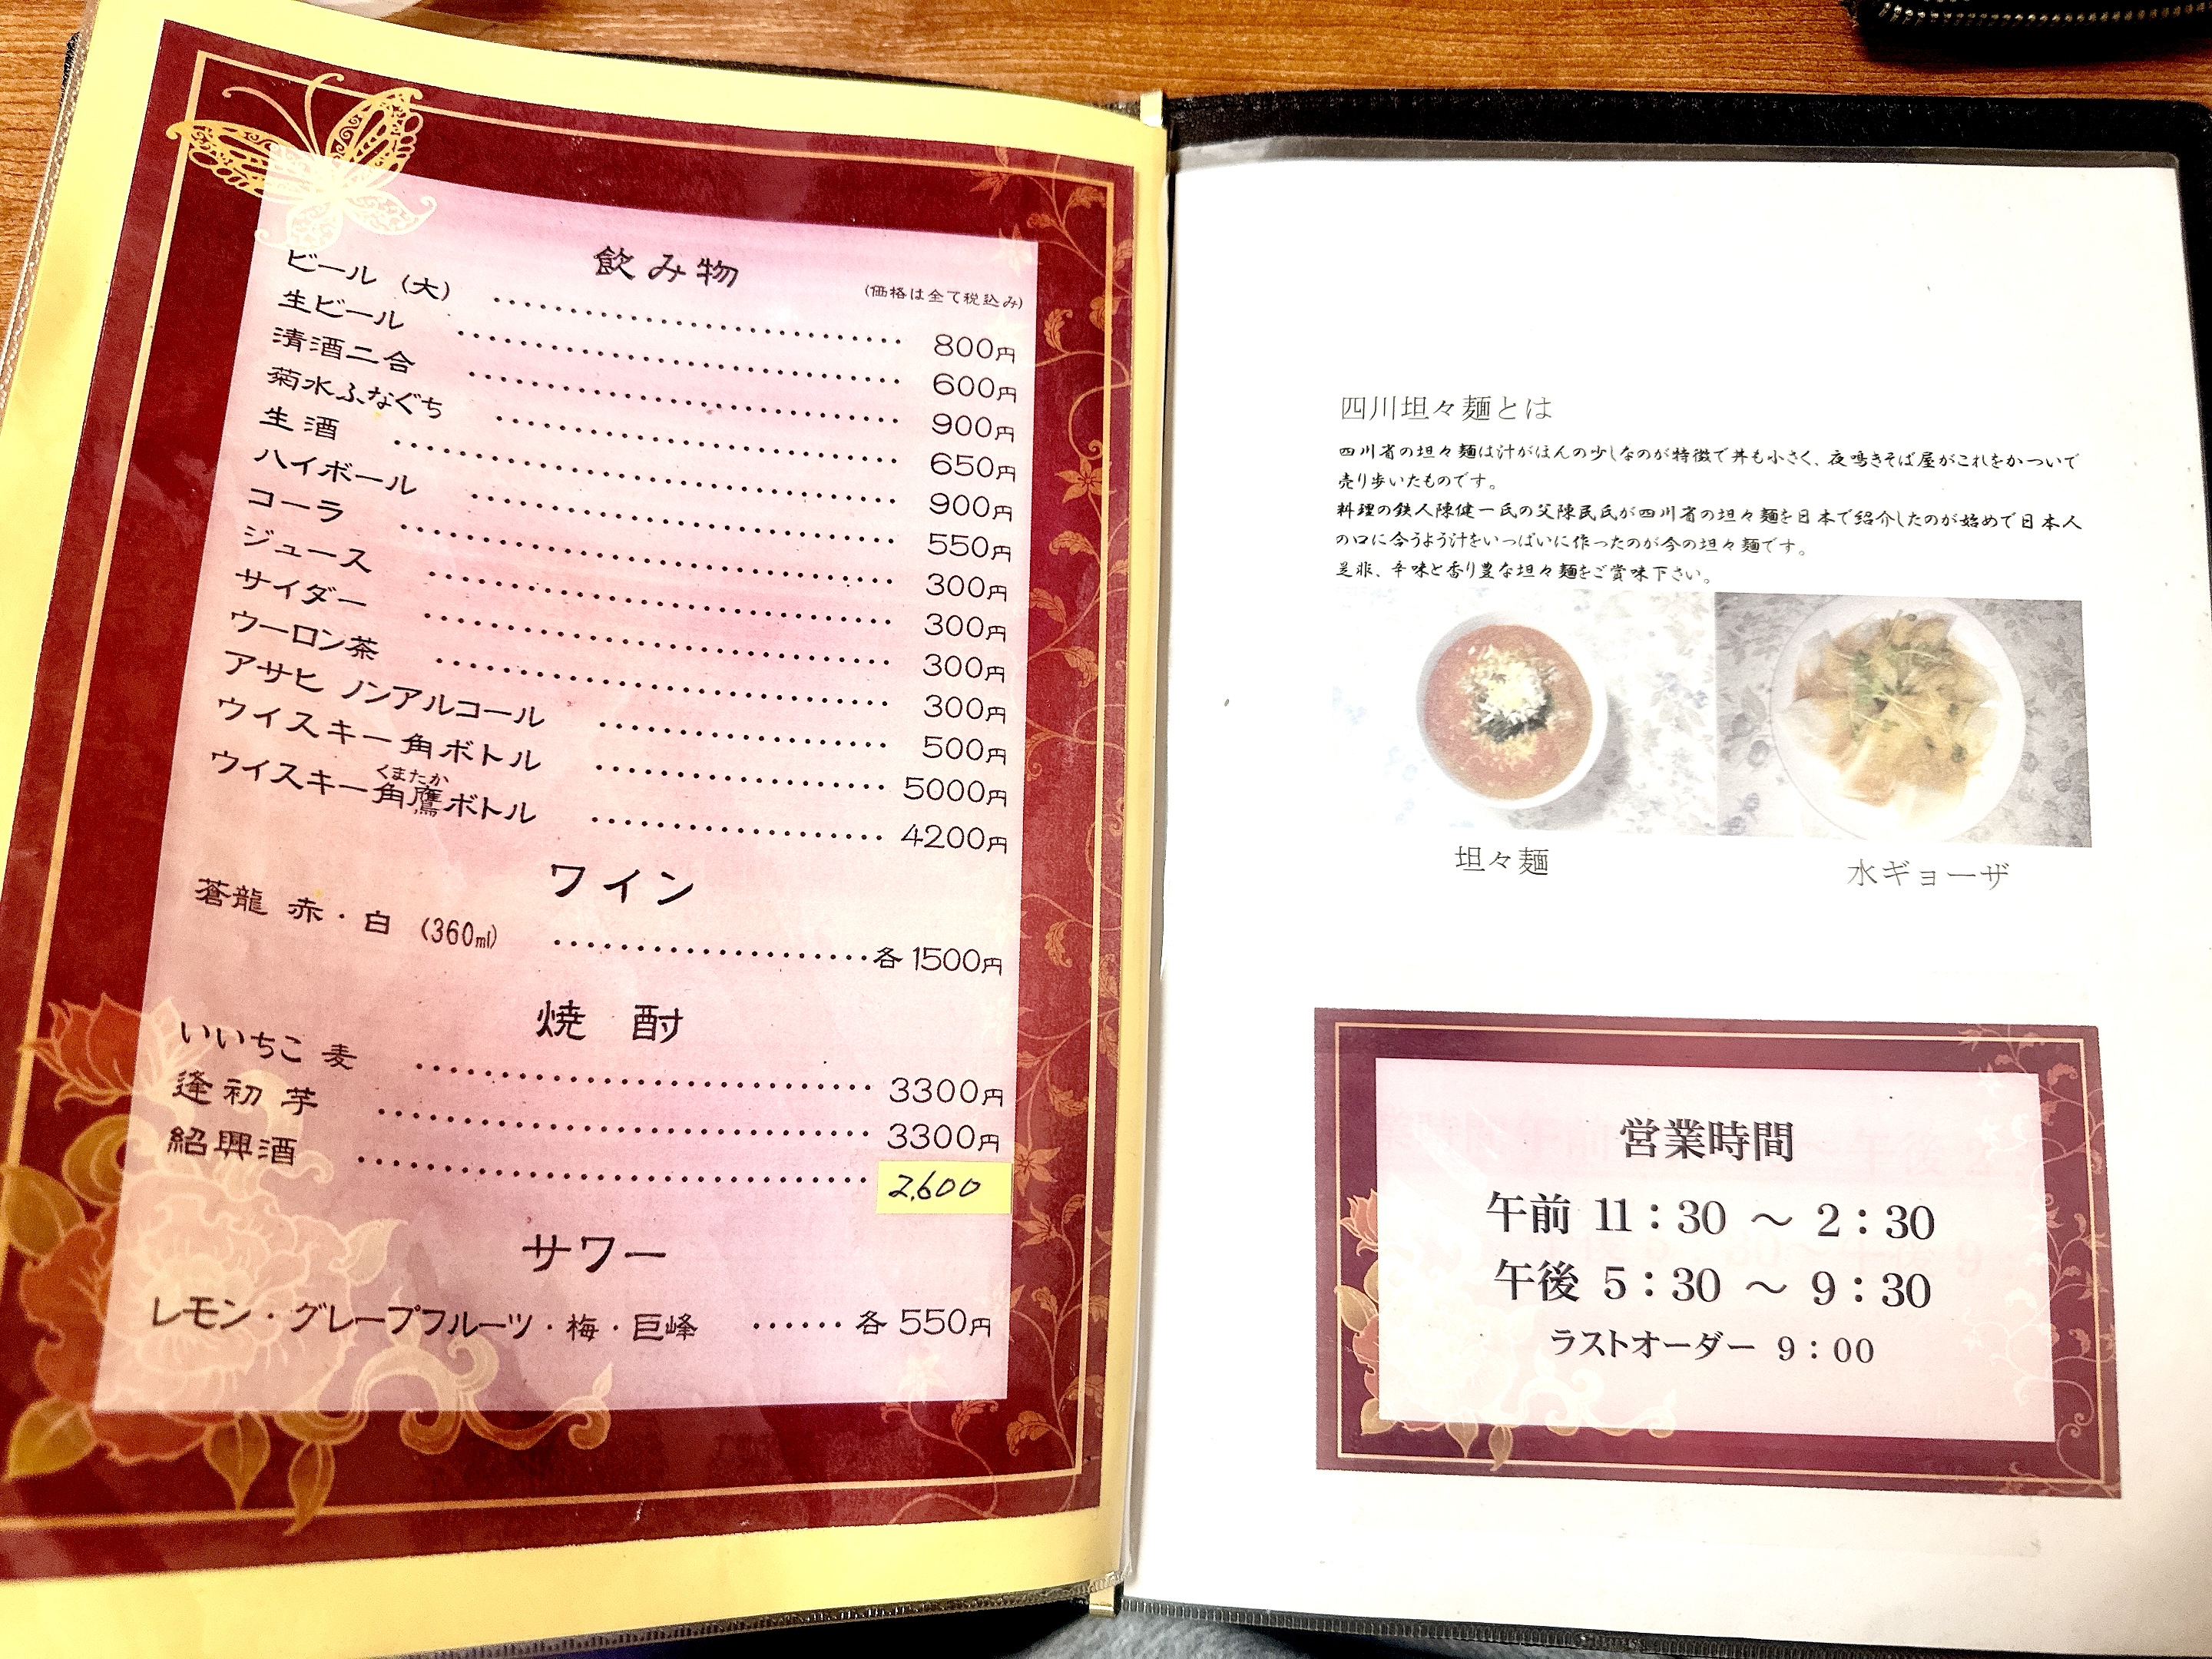 飲み物
(価格は全て税込み)
ビール (大) 800円
生ビール 600円
清酒二合 900円
菊水ふなぐち 650円
生酒 900円
ハイボール 550円
コーラ 300円
ジュース 300円
サイダー 300円
ウーロン茶 300円
アサヒ ノンアルコール 500円
ウイスキー角ボトル 5000円
くまたか
ウイスキー角鷹ボトル 4200円
ワイン
蒼龍 赤・白 (360ml) 各1500円
焼 酎
いいちこ 麦 3300円
逢初 芋 3300円
紹興酒 2,600
サワー
レモン・グレープフルーツ・梅・巨峰 各550円
四川坦々麺とは
四川省の坦々麺は汁がほんの少しなのが特徴で丼も小さく、夜鳴きそば屋がこれをかついで
売り歩いたものです。
料理の鉄人陳健一氏の父陳民氏が四川省の坦々麺を日本で紹介したのが始めで日本人
の口に合うよう汁をいっぱいに作ったのが今の坦々麺です。
是非、辛味と香り豊な坦々麺をご賞味下さい。
坦々麺
水ギョーザ
営業時間
午前 11:30 ～ 2:30
午後 5:30 ～ 9:30
ラストオーダー 9:00